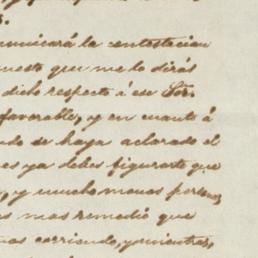 municará la contestacion
puesto que me lo dirás
dicho respecto á ese Sor.
favorable, y en cuanto á
do se haya aclarado el
es ya debes figurarte que
, y mucho menos por
as mas remedio que
mas corriendo, y mientras